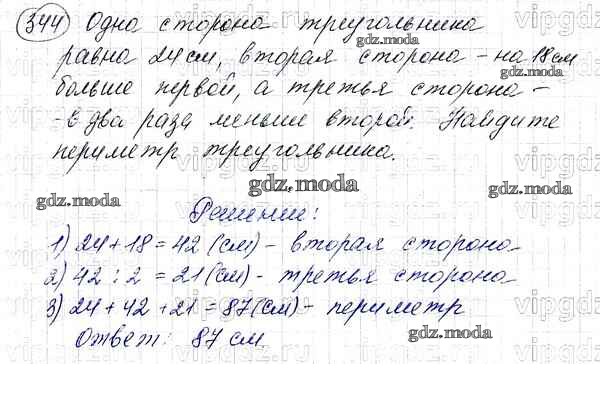 344 Одна сторона треугольника
равна 24 см, вторая сторона - на 18 см
больше первой, а третья сторона -
- в два раза меньше второй. Найдите
периметр треугольника.
gdz.moda
gdz.moda
gdz.moda
gdz.moda
gdz.moda
Решение:
1) 24 + 18 = 42 (см) - вторая сторона
2) 42 : 2 = 21 (см) - третья сторона
3) 24 + 42 + 21 = 87 (см) - периметр
Ответ: 87 см.
gdz.moda